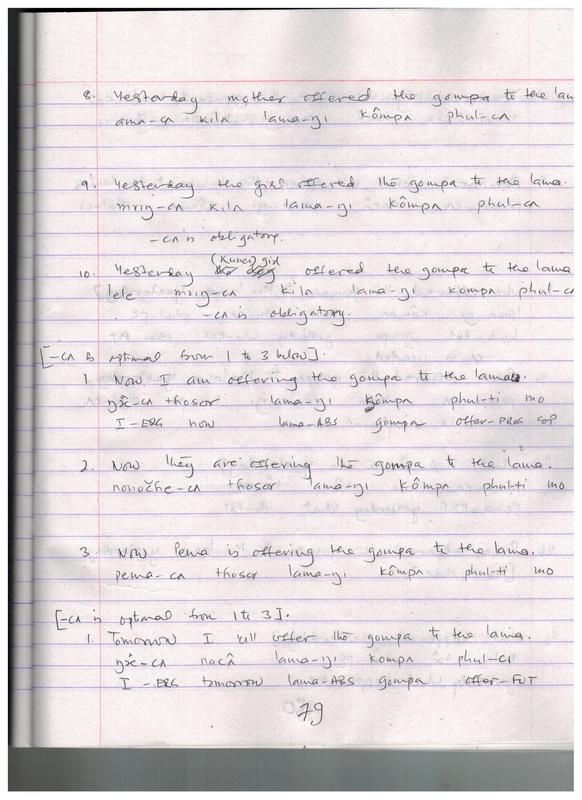 8. Yesterday mother offered the gompa to the lam
ama-cʌ kilʌ lama-ŋi kômpʌ phul-cʌ
9. Yesterday the girl offered the gompa to the lama.
mriŋ-cʌ kilʌ lama-ŋi kômpʌ phul-cʌ
-cʌ is obligatory.
(Kunci) girl
10. Yesterday offered the gompa to the lama
lele mriŋ-cʌ kilʌ lama-ŋi kompʌ phul-cʌ
-cʌ is obligatory.
[-cʌ is optimal from 1 to 3 below].
1. Now I am offering the gompa to the lama.
ŋjê-cʌ thosor lama-ŋi kômpʌ phul-ti mo
I-ERG now lama-ABS gompa offer-PROG COP
2. Now they are offering the gompa to the lama.
nonočhe-cʌ thosor lama-ŋi kômpʌ phul-ti mo
3. Now Pema is offering the gompa to the lama.
pema-cʌ thosor lama-ŋi kômpʌ phul-ti mo
[-cʌ is optimal from 1 to 3].
1. Tomorrow I will offer the gompa to the lama.
ŋjê-cʌ nacʌ̂ lama-ŋi kompʌ phul-ci
I-ERG tomorrow lama-ABS gompa offer-FUT
79